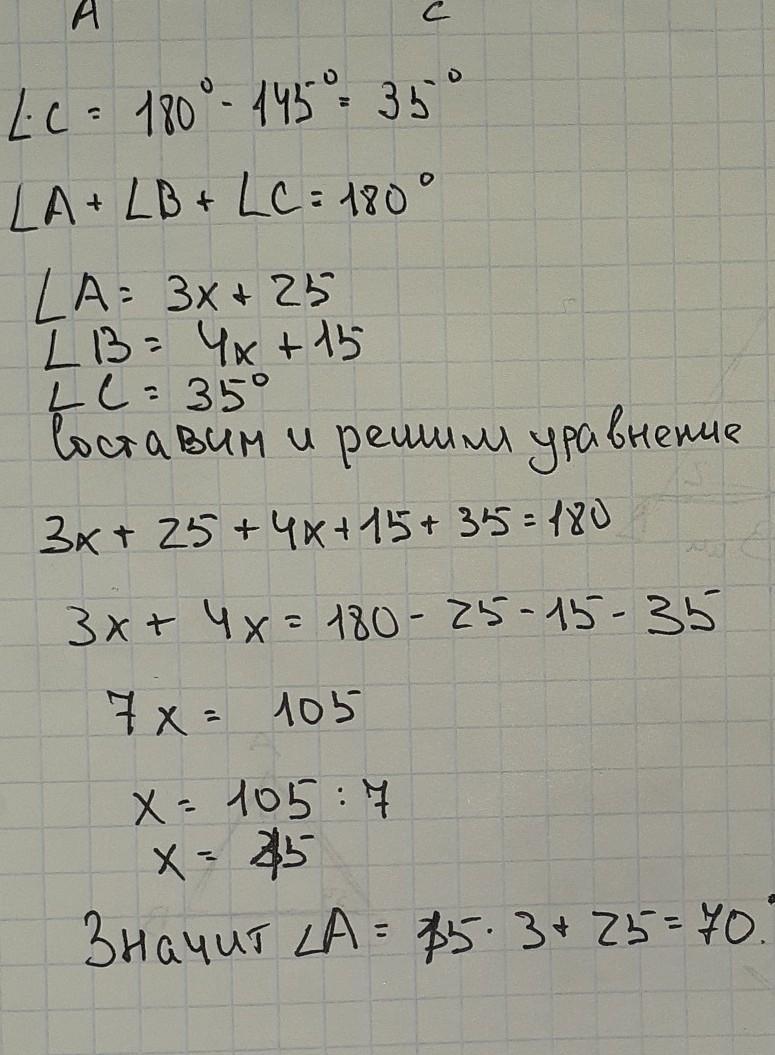 A C
∠C = 180° - 145° = 35°
∠A + ∠B + ∠C = 180°
∠A = 3x + 25
∠B = 4x + 15
∠C = 35°
Составим и решим уравнение
3x + 25 + 4x + 15 + 35 = 180
3x + 4x = 180 - 25 - 15 - 35
7x = 105
x = 105 : 7
x = 15
Значит ∠A = 15 · 3 + 25 = 70°